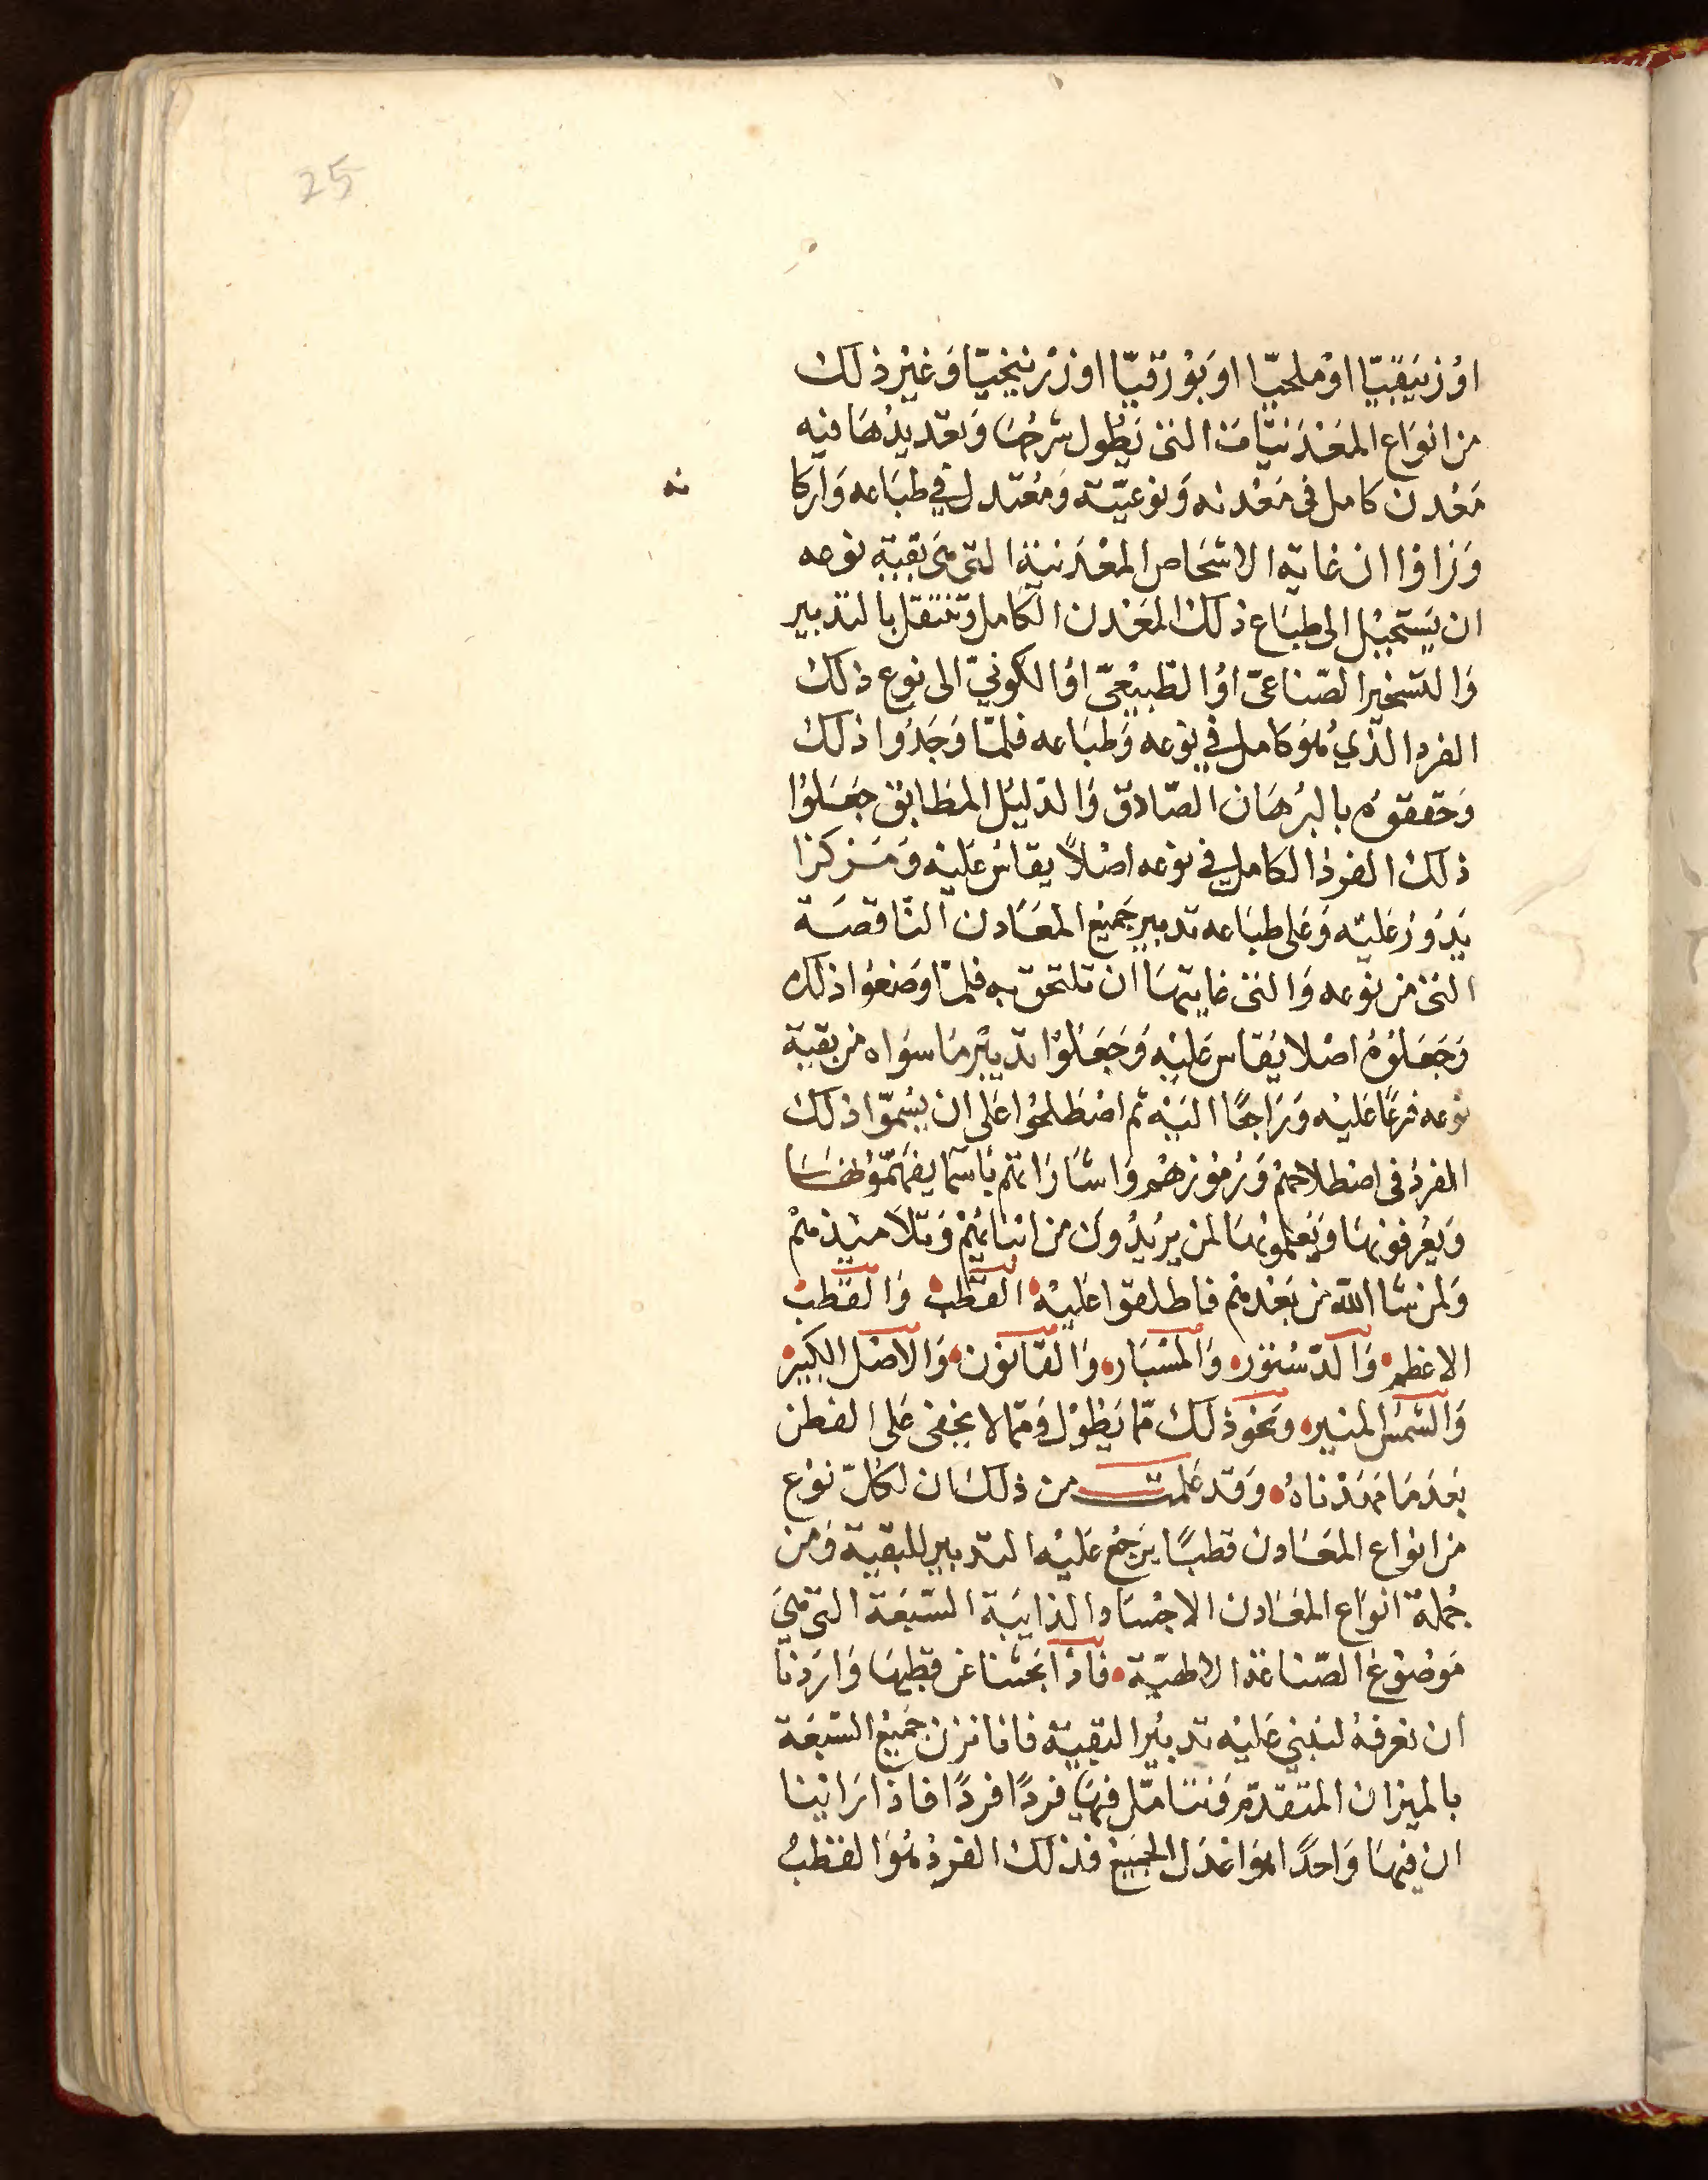 25
اوْ زيَبقيّا اوْ ملحيّا اوَ بوْرَقيّا اوزرْنيخيّا وَغيْر ذلك
من انوَاع المعَدَنيّات التى يَطُول شرحُهَا وَتعَديدُهَا فيه
مَعْدن كامل فى مَعْدنه وَنوعيّته وَمُعتدل في طبَاعه وَاركا
نه
وَرَاوا ان غاية الاشخاص المعْدَنية التى هىَ بَقية نوعه
ان يَستحيْل الى طبَاع ذلك المعَدن الكامل وَتنتقل بالتدبير
وَالتسخير الصّناعىّ اوْ الطّبيْعىّ اوْ الكونيّ الى نوع ذلك
الفرد الذّي هُوَ كامل في نوعه وَطبَاعه فلمّا وَجَدُوا ذلك
وَحققوُه بالبرُهَان الصّادق وَالدّليْل المطَابق جعَلوُا
ذلك الفردْ الكامل في نوعه اصْلاً يقاسُ عَليْه وَمَركزا
يَدوُرْ عَليْه وَعَلى طبَاعه تدبير جَميْع المعَادن الناقصَة
التى من نوْعه وَالتى غايتهَا ان تلتحق به فلمّا وَضعُوا ذلك
وَجَعَلوُهُ اصْلا يُقاس عَليْه وَجَعَلوُا تدبيْر مَا سوَاه من بقية
نوعه فرعًا عَليْه وَرَاجعًا اليْه ثم اصْطَلحُوا عَلى ان يسُمّوا ذلك
الفردْ فى اصْطلاحهم وَرُموُزهمْ وَاشَارَاتهم باسَمآ يفهَمُوُنهَا
وَيعْرفونهَا وَيَعلّمونهَا لمن يرُيْدُون من ابنائهمْ وَتلاميْذهمْ
وَلمن شا الله من بَعْدهم فاطلقوا عَليْه القطبْ وَالقطبْ
الاعْظم وَالدّسْتوُر وَالمسْبَار وَالقَانوُن وَالاصْل الكبيْر
وَالشمسُ المنير وَنحوَ ذلك ممّا يَطوُل وَممّا لا يخفى عَلى الفطن
بَعْدَ مَا مَهدْناهُ وَقد عَلمتَ من ذلك ان لكلّ نوْع
من انواع المعَادن قطبًا يَرجعُ عَليْه التدبير للبقية وَمن
جُملة انوَاع المعَادن الاجْسَاد الذايبَة السّبعَة التى هىَ
مَوضوْعُ الصّناعَة الالهيّة فاذا بَحثنا عَن قطبهَا وَارَدنا
ان نعرفهُ لنبْني عَليْه تدبيُر البقيّة فانا نزن جَميْعُ السّبعَة
بالميزان المتقدّم وَنتأمّل فيهَا فردًا فردًا فاذا رَاينا
ان فيهَا وَاحدًا هوَ اعْدَل الجمَيعْ فذلك الفردْ هُوَ القطبُ